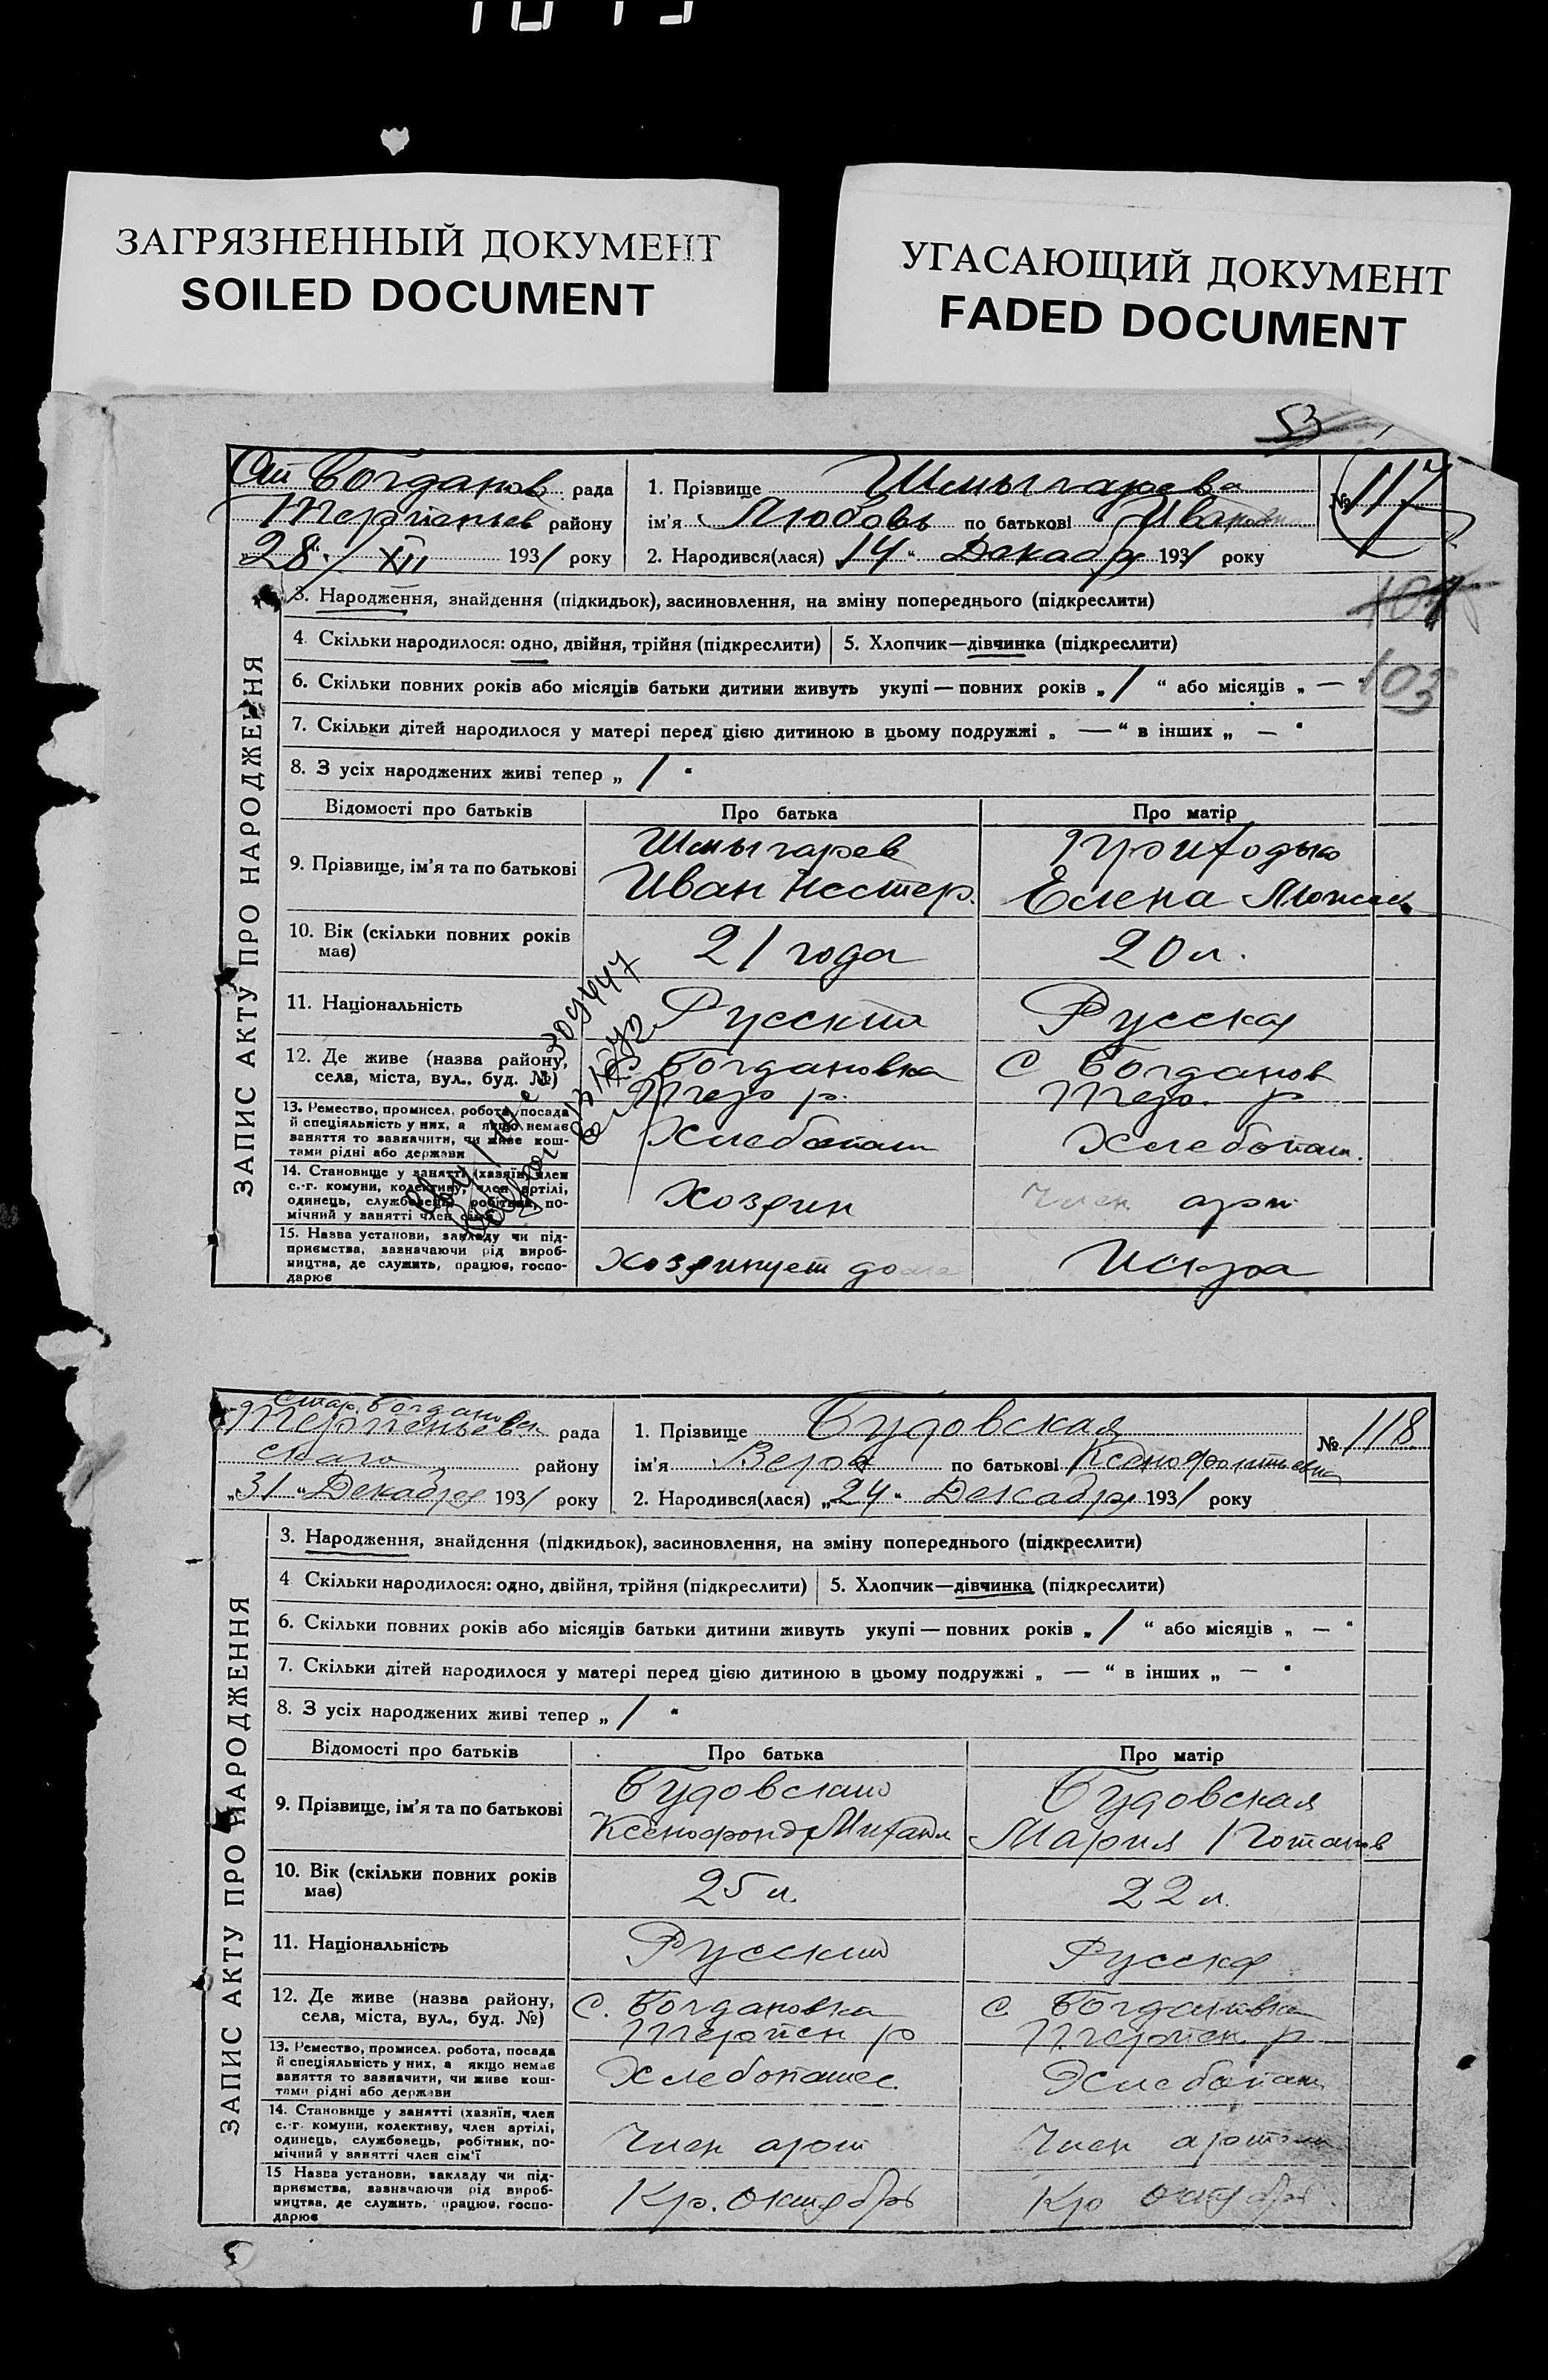 ЗАГРЯЗНЕННЫЙ ДОКУМЕНТ
SOILED DOCUMENT
УГАСАЮЩИЙ ДОКУМЕНТ
FADED DOCUMENT
53
Ст Богданов рада
Терпеньев району
"28" / XII 1931 року
1. Прізвище Шмыгларева
ім'я Любовь по батькові Ивановн
2. Народився(лася) "14" Декабр 1931 року
№ 117
ЗАПИС АКТУ ПРО НАРОДЖЕННЯ
3. Народження, знайдення (підкидьок), засиновлення, на зміну попереднього (підкреслити)
4. Скільки народилося: одно, двійня, трійня (підкреслити) 5. Хлопчик—дівчинка (підкреслити)
6. Скільки повних років або місяців батьки дитини живуть укупі — повних років „ 1 “ або місяців „ — “
103
7. Скільки дітей народилося у матері перед цією дитиною в цьому подружжі „ — “ в інших „ — “
8. З усіх народжених живі тепер „ 1 “
Відомості про батьків Про батька Про матір
9. Прізвище, ім'я та по батькові
Шмыгарев
Иван Нестер.
Приходько
Елена
10. Вік (скільки повних років має)
21 года
20 л.
11. Національність
Русский
Русская
12. Де живе (назва району, села, міста, вул., буд. №)
С Богдановка
Тер р.
С Богданов
Тер. р
13. Ремество, промисел, робота, посада й спеціяльність у них, а якщо немає заняття то зазначити, чи живе коштами рідні або держави
Хлебопаш
Хлебопаш.
14. Становище у занятті (хазяїн, член с.-г. комуни, колективу, член артілі, одинець, службовець, робітник, помічний у занятті член сім'ї
Хозяин
Член арт
15. Назва установи, закладу чи підприємства, зазначаючи рід виробництва, де служить, працює, господарює
Хозяинует дома
Искра
Стар. Богдановск
Терпеньев рада
скаго району
„31“ Декабря 1931 року
1. Прізвище Будовская
ім'я Вера по батькові Ксенофонтьевна
2. Народився(лася) „24“ Декабря 1931 року
№ 118
ЗАПИС АКТУ ПРО НАРОДЖЕННЯ
3. Народження, знайдення (підкидьок), засиновлення, на зміну попереднього (підкреслити)
4 Скільки народилося: одно, двійня, трійня (підкреслити) 5. Хлопчик—дівчинка (підкреслити)
6. Скільки повних років або місяців батьки дитини живуть укупі — повних років „ 1 “ або місяців „ — “
7. Скільки дітей народилося у матері перед цією дитиною в цьому подружжі „ — “ в інших „ — “
8. З усіх народжених живі тепер „ 1 “
Відомості про батьків Про батька Про матір
9. Прізвище, ім'я та по батькові
Будовский
Ксенофонд Михайл
Будовская
Мария Потапов
10. Вік (скільки повних років має)
25 л.
22 л.
11. Національність
Русский
Русская
12. Де живе (назва району, села, міста, вул., буд. №)
С. Богдановка
Терпен р
С. Богдановка
Терпен р
13. Ремество, промисел, робота, посада й спеціяльність у них, а якщо немає заняття то зазначити, чи живе коштами рідні або держави
Хлебопашес
Хлебопаш
14. Становище у занятті (хазяїн, член с.-г. комуни, колективу, член артілі, одинець, службовець, робітник, помічний у занятті член сім'ї
Член арт
Член арт
15 Назва установи, закладу чи підприємства, зазначаючи рід виробництва, де служить, працює, господарює
Кр. Октябрь
Кр Октябрь